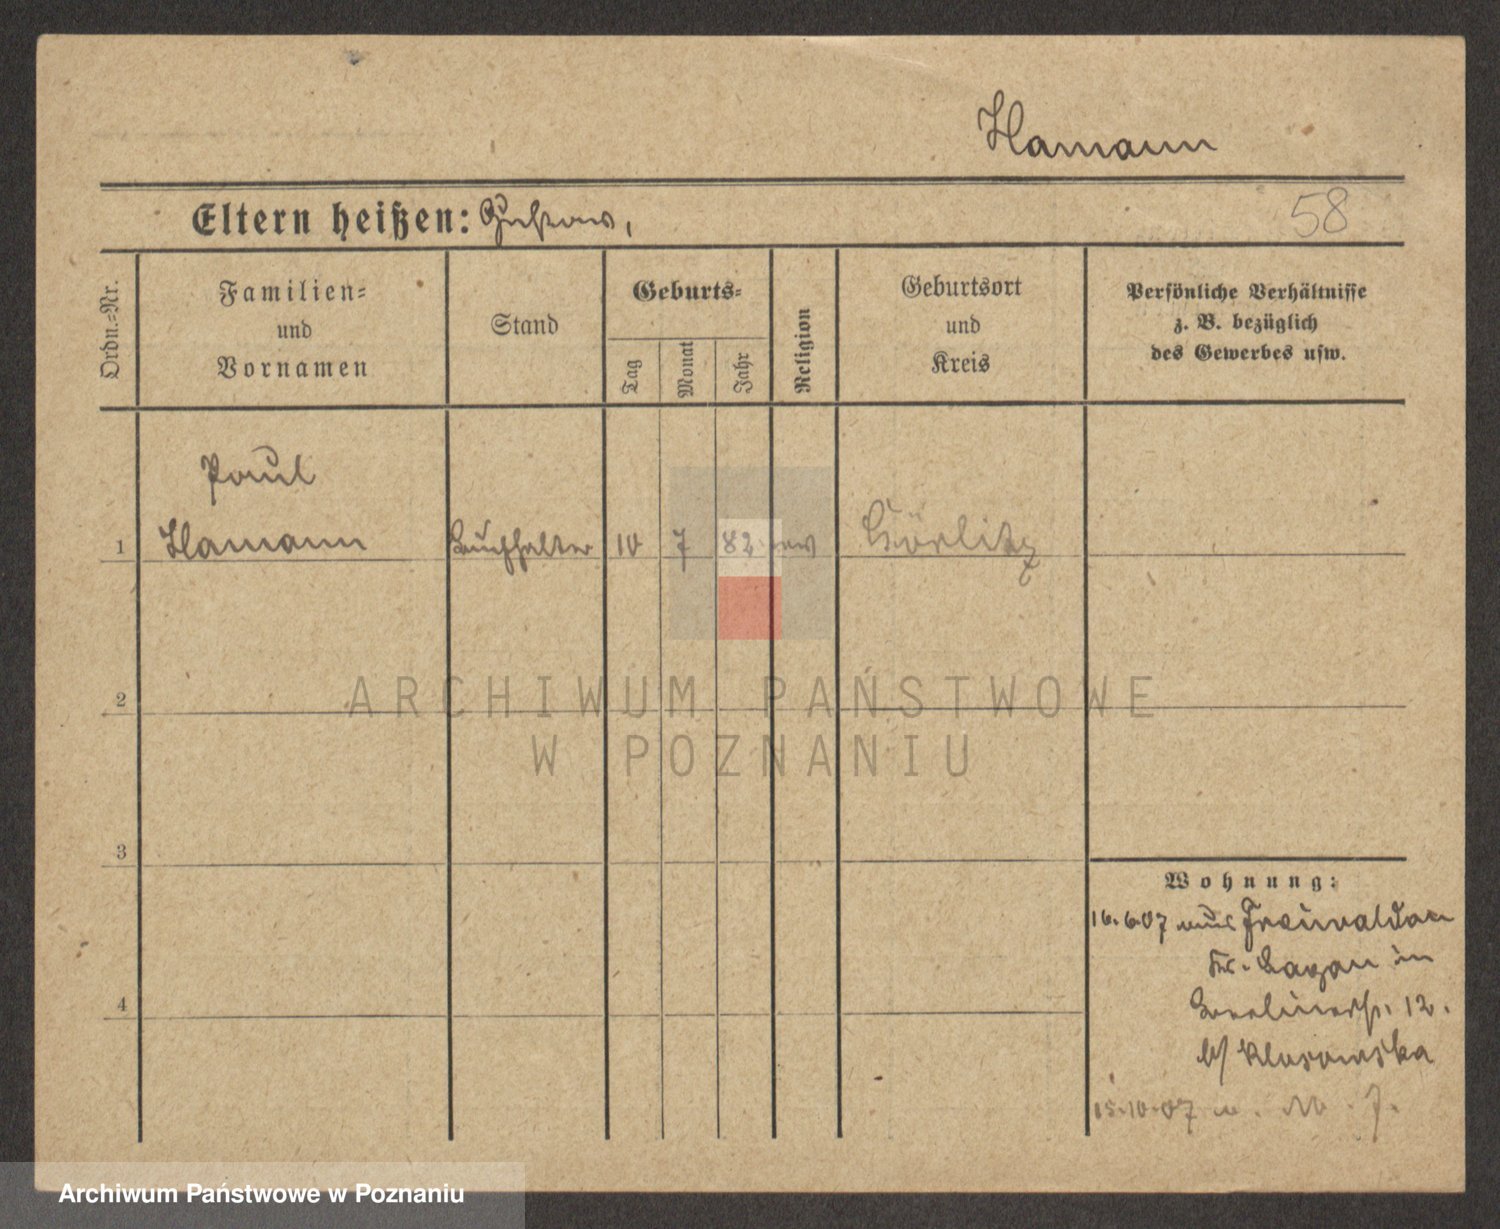 Hamann
Eltern heißen: Gustav,
58
Ordn.-Nr.
Familien-
und
Vornamen
Stand
Geburts-
Tag
Monat
Jahr
Religion
Geburtsort
und
Kreis
Persönliche Verhältnisse
z. B. bezüglich
des Gewerbes usw.
Paul
1 Hamann Buchhalter 10 7 82 ev Görlitz
2
3
4
Wohnung:
16.6.07 aus Freiwaldau
Kr. Sagan in
Berlinerstr. 12.
b/ Klosowska
15.10.07
ARCHIWUM PAŃSTWOWE
W POZNANIU
Archiwum Państwowe w Poznaniu